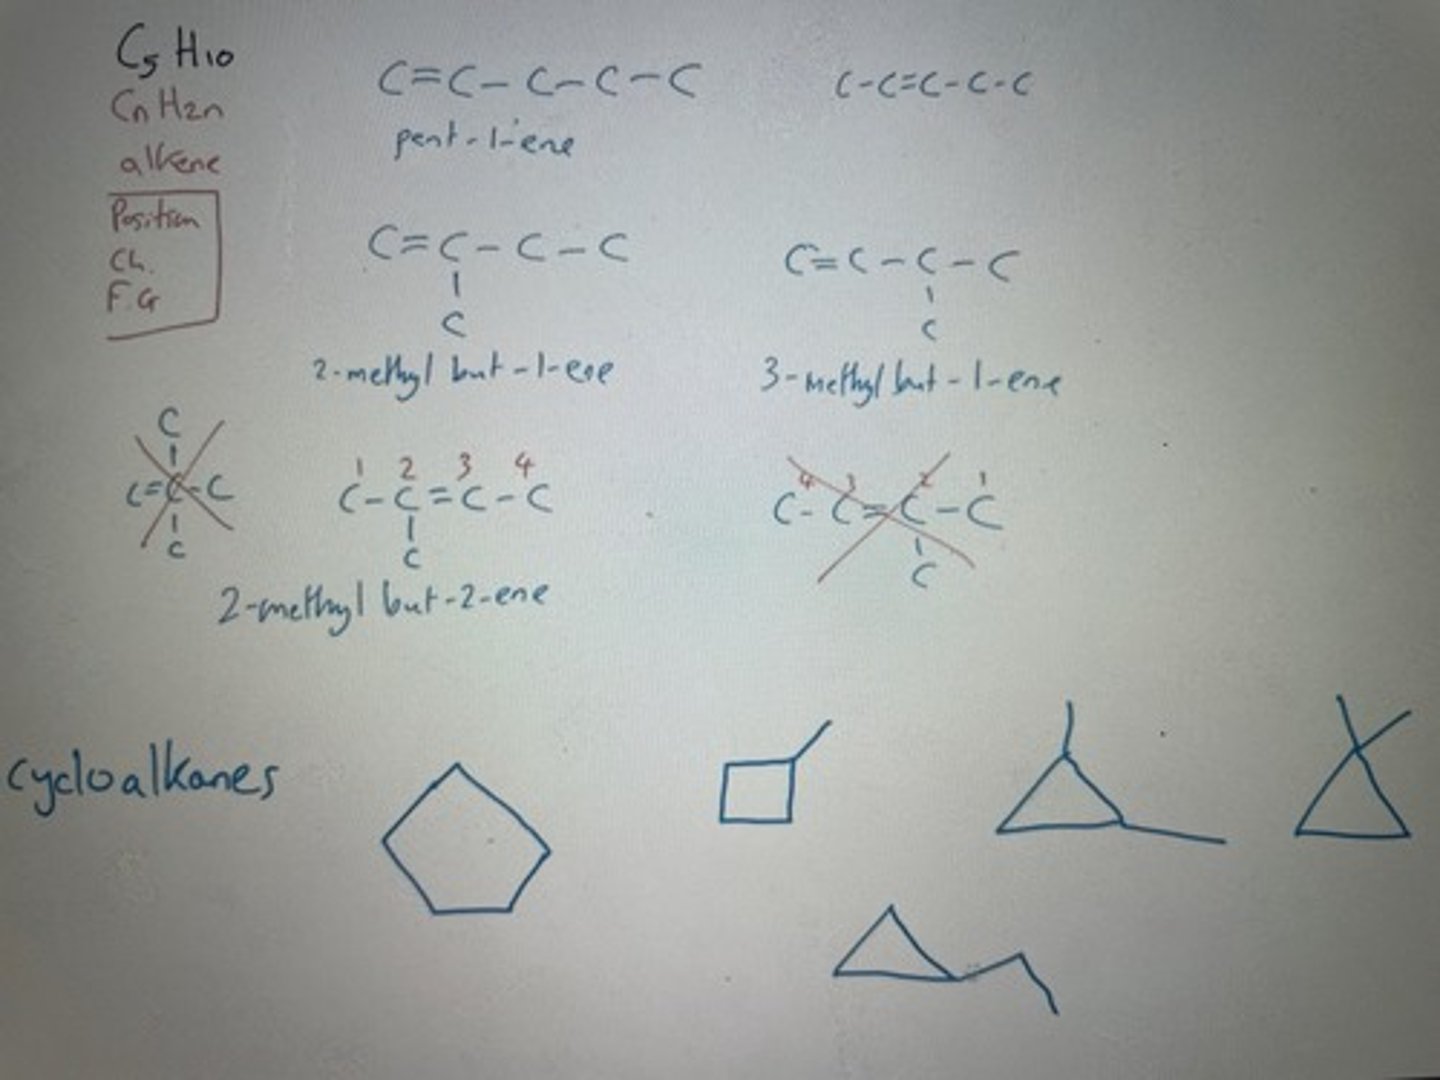 C5 H10
CnH2n
alkene
Position
Ch.
F.G
C=C-C-C-C
pent-1-ene
C-C=C-C-C
C=C-C-C
C
2-methyl but-1-ene
C=C-C-C
C
3-methyl but-1-ene
C
C=C-C
C
1 2 3 4
C-C=C-C
C
2-methyl but-2-ene
4 3 2 1
C-C=C-C
C
cycloalkanes